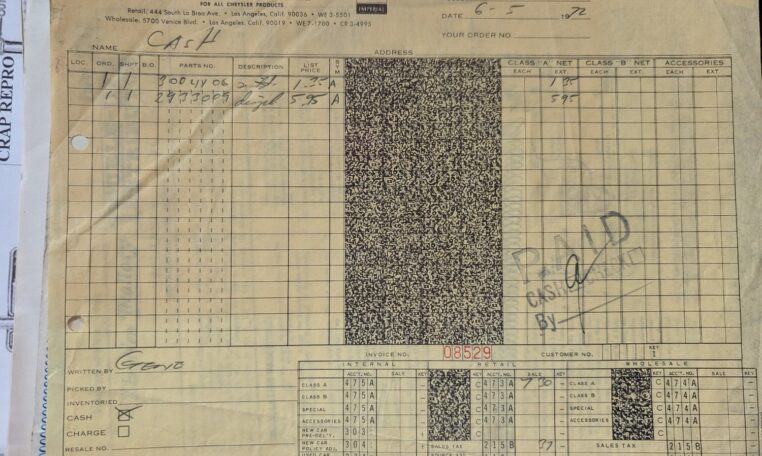 FOR ALL CHRYSLER PRODUCTS
Retail: 444 South La Brea Ave. • Los Angeles, Calif. 90036 • WE 3-5501
IMPERIAL
Wholesale: 5700 Venice Blvd. • Los Angeles, Calif. 90019 • WE 7-1700 • CR 3-4995
DATE 6-5 1972
YOUR ORDER NO.
NAME CASH
ADDRESS
LOC. ORD. SHPT B.O. PARTS NO. DESCRIPTION LIST PRICE SYM CLASS "A" NET CLASS "B" NET ACCESSORIES
EACH EXT. EACH EXT. EACH EXT.
1 1 1.35 A 1 35
1 1 5.95 A 5 95
CRAP REPRO
PAID
By
INVOICE NO. 08529 CUSTOMER NO. KEY
WRITTEN BY Geno
PICKED BY
INVENTORIED
CASH
CHARGE
RESALE NO.
INTERNAL RETAIL WHOLESALE
ACC'T. NO. SALE KEY ACC'T. NO. SALE KEY ACC'T. NO. SALE KEY
CLASS A 475A C 473A 7 30 – CLASS A C 474A –
CLASS B 475A C 473A – CLASS B C 474A –
SPECIAL 475A C 473A – SPECIAL C 474A –
ACCESSORIES 475A C 473A – ACCESSORIES C 474A –
NEW CAR PRE-DEL'Y. 303 C
NEW CAR POLICY ADJ. 304 SALES TAX 215B 37 – SALES TAX 215B –
USED CAR